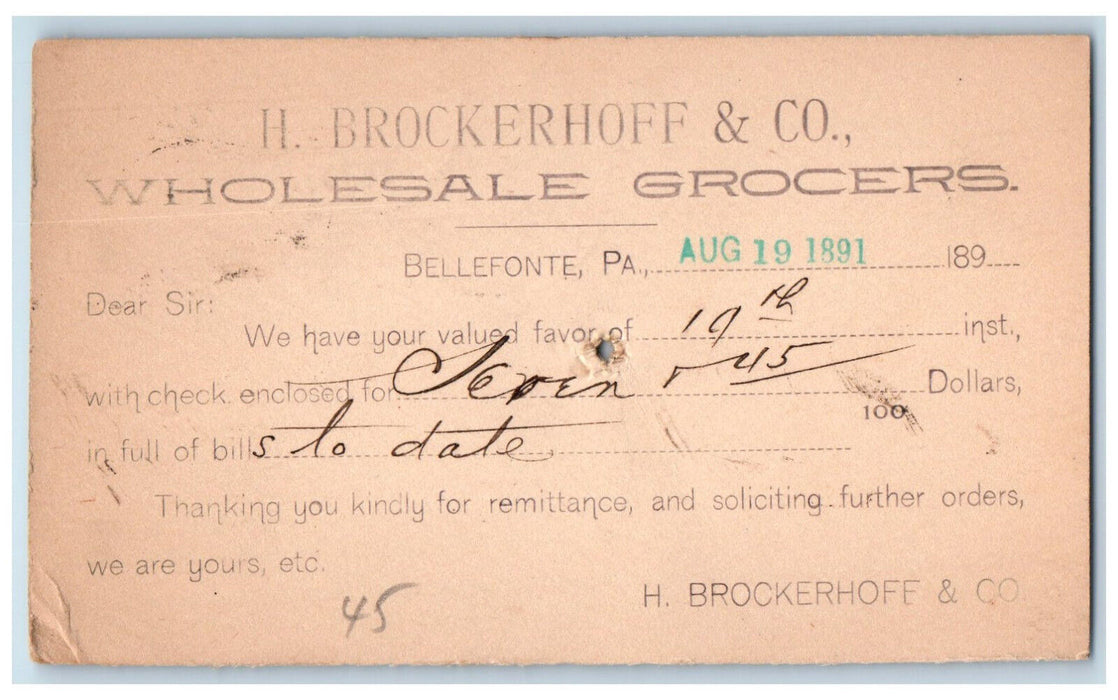 H. BROCKERHOFF & CO.,
WHOLESALE GROCERS.
BELLEFONTE, PA., AUG 19 1891 189
Dear Sir:
We have your valued favor of 19th inst.,
with check enclosed for Seven 45 Dollars,
100
in full of bills to date
Thanking you kindly for remittance, and soliciting further orders,
we are yours, etc.
H. BROCKERHOFF & CO.
45